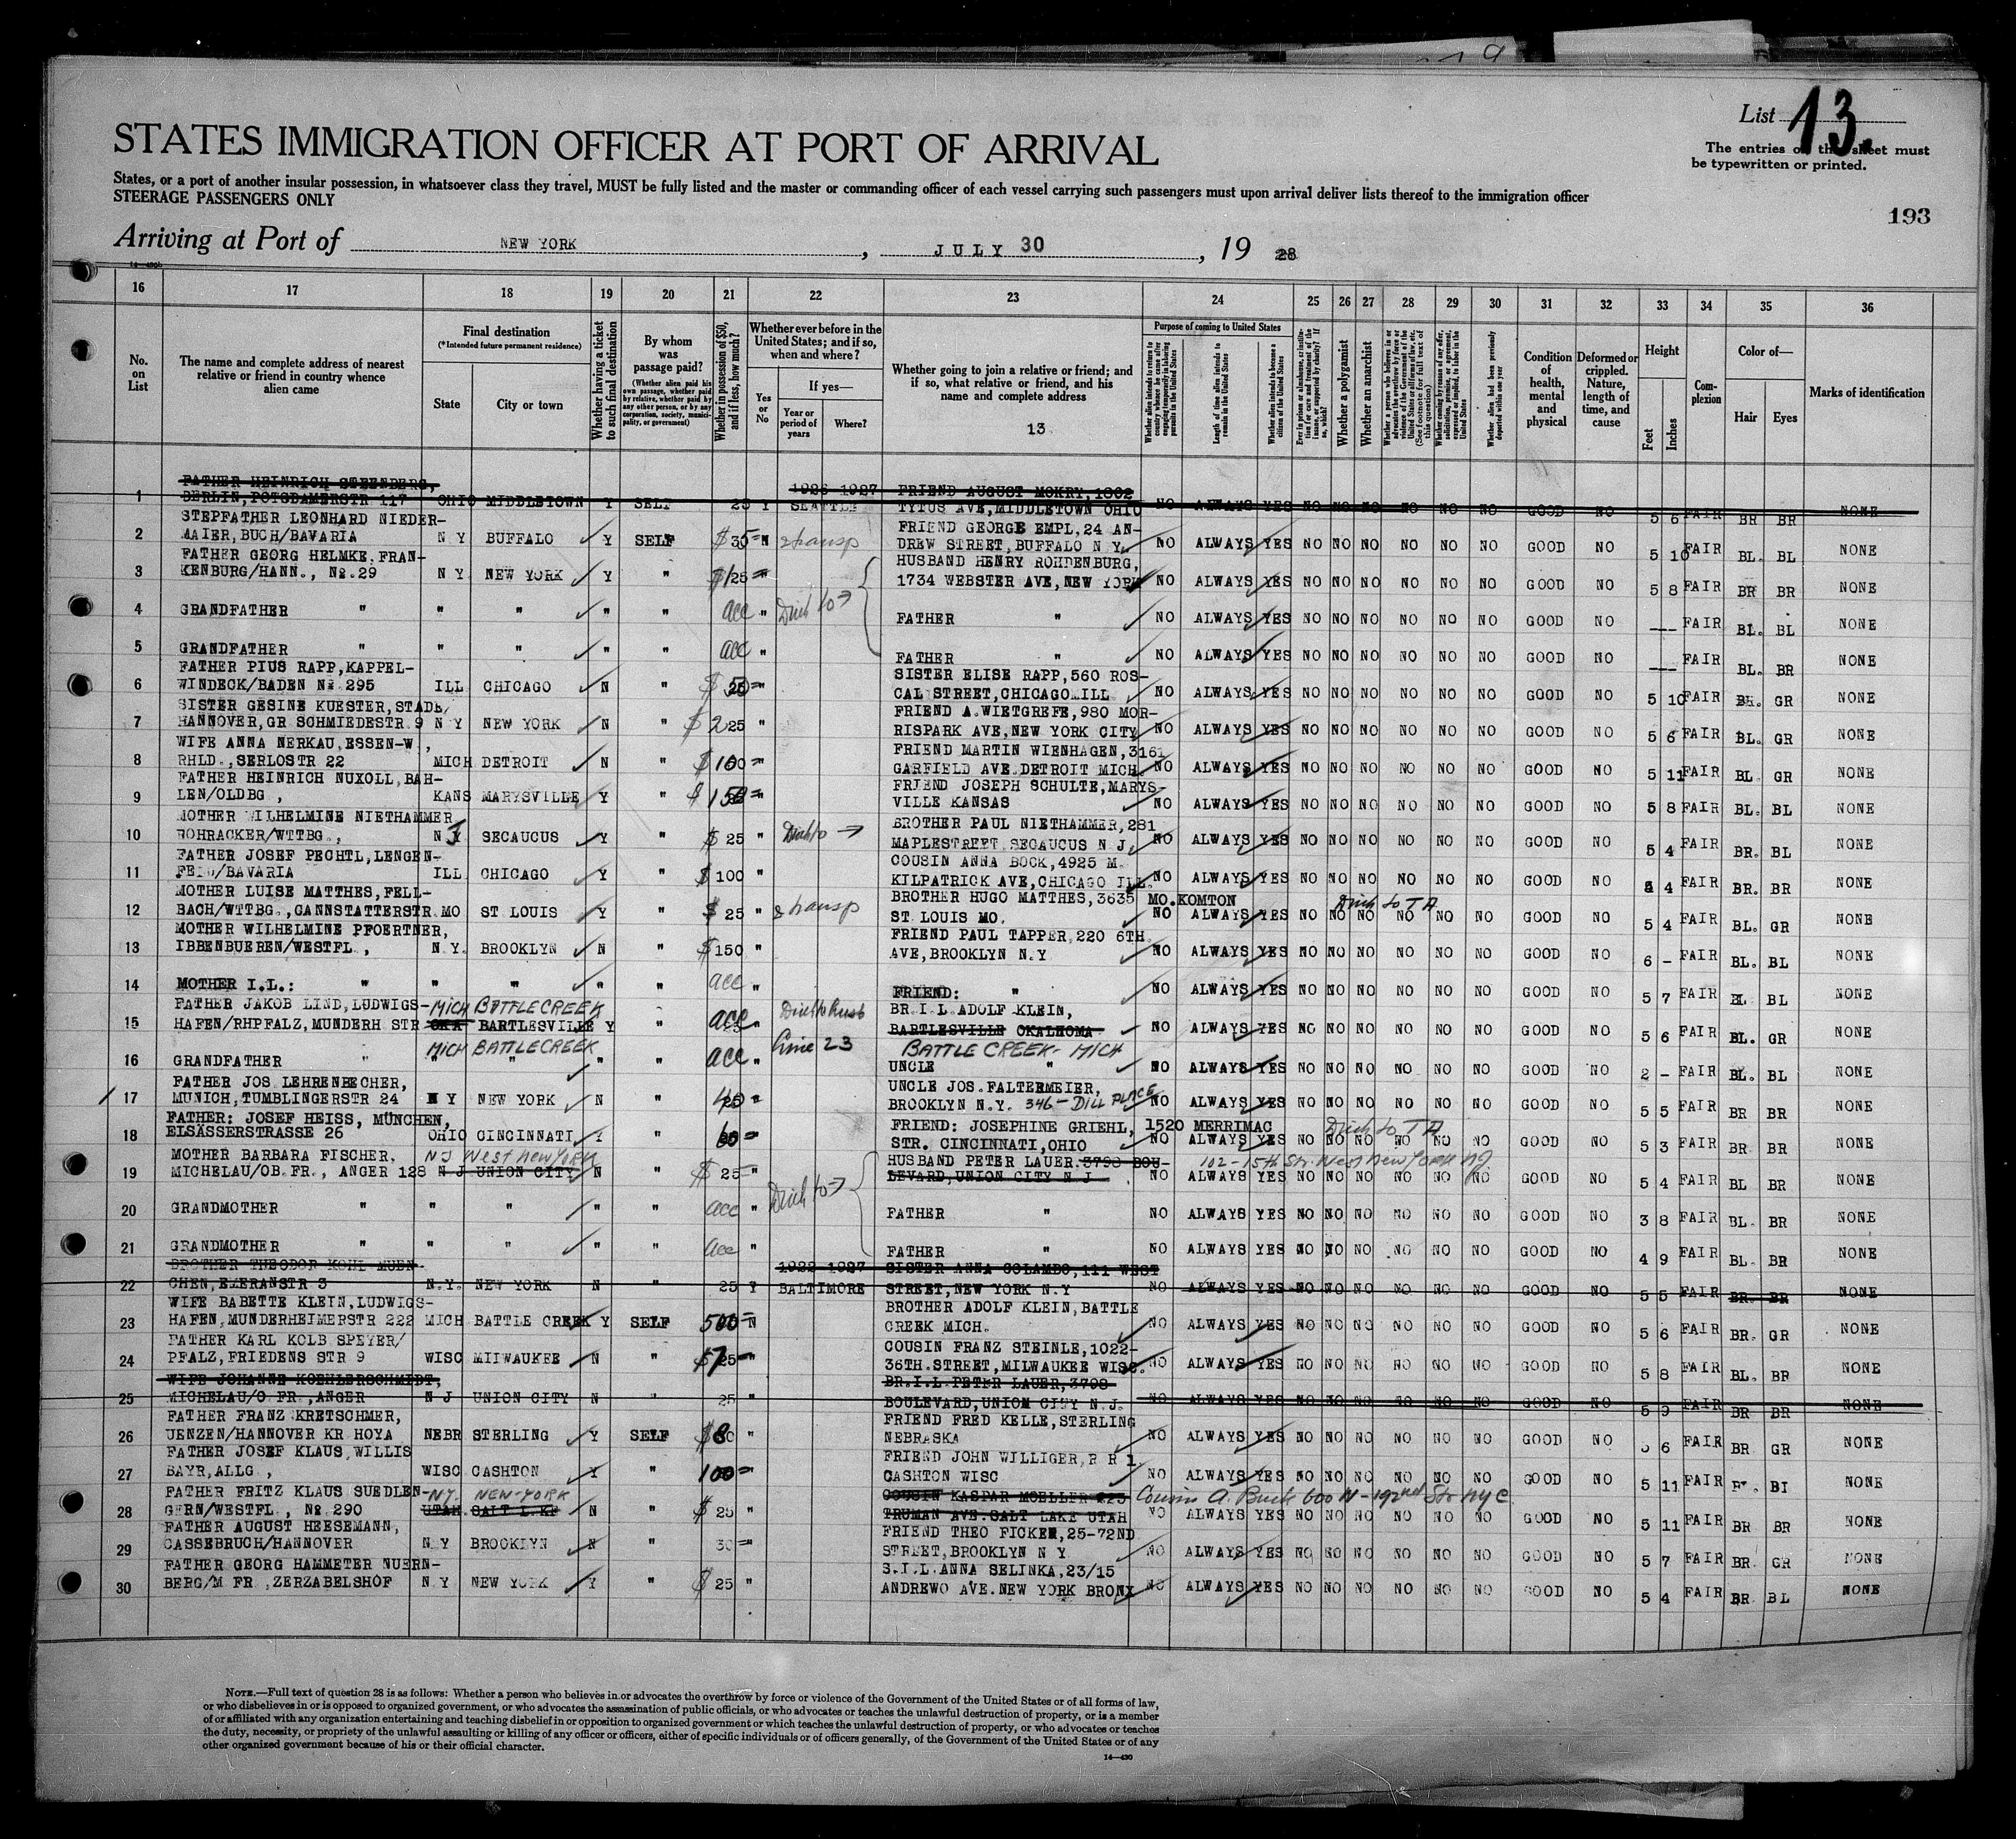 List 13.
The entries on this sheet must
be typewritten or printed.
STATES IMMIGRATION OFFICER AT PORT OF ARRIVAL
States, or a port of another insular possession, in whatsoever class they travel, MUST be fully listed and the master or commanding officer of each vessel carrying such passengers must upon arrival deliver lists thereof to the immigration officer
STEERAGE PASSENGERS ONLY
193
Arriving at Port of NEW YORK, JULY 30, 19 28
16 17 18 19 20 21 22 23 24 25 26 27 28 29 30 31 32 33 34 35 36
No. on List
The name and complete address of nearest relative or friend in country whence alien came
Final destination
(*Intended future permanent residence)
State
City or town
Whether having a ticket to such final destination
By whom was passage paid?
(Whether alien paid his own passage, whether paid by relative, whether paid by any other person, or by any corporation, society, municipality, or government)
Whether in possession of $50, and if less, how much?
Whether ever before in the United States; and if so, when and where?
Yes or No
If yes—
Year or period of years
Where?
Whether going to join a relative or friend; and if so, what relative or friend, and his name and complete address
13
Purpose of coming to United States
Length of time alien intends to remain in the United States
Whether alien intends to become a citizen of the United States
Whether a polygamist
Whether an anarchist
Condition of health, mental and physical
Deformed or crippled. Nature, length of time, and cause
Height
Feet
Inches
Complexion
Color of—
Hair
Eyes
Marks of identification
FATHER HEINRICH STEENBERG, 1926-1927 FRIEND AUGUST MOKRY, 1802
1 BERLIN, POTSDAMERSTR 117 OHIO MIDDLETOWN Y SELF 25 Y SEATTLE TYTUS AVE, MIDDLETOWN OHIO NO ALWAYS YES NO NO NO NO NO NO GOOD NO 5 6 FAIR BR BR NONE
STEPFATHER LEONHARD NIEDER- FRIEND GEORGE EMPL, 24 AN-
2 MAIER, BUCH/BAVARIA N Y BUFFALO Y SELF $ 35 N transp DREW STREET, BUFFALO N Y NO ALWAYS YES NO NO NO NO NO NO GOOD NO 5 10 FAIR BL. BL NONE
FATHER GEORG HELMKE, FRAN- HUSBAND HENRY ROHDENBURG,
3 KENBURG/HANN., No. 29 N Y NEW YORK Y " $125 " 1734 WEBSTER AVE, NEW YORK NO ALWAYS YES NO NO NO NO NO NO GOOD NO 5 8 FAIR BR BR NONE
4 GRANDFATHER " " " " " acc " FATHER " NO ALWAYS YES NO NO NO NO NO NO GOOD NO --- FAIR BL. BL NONE
5 GRANDFATHER " " " " " acc " FATHER " NO ALWAYS YES NO NO NO NO NO NO GOOD NO --- FAIR BL. BR NONE
FATHER PIUS RAPP, KAPPEL- SISTER ELISE RAPP, 560 ROS-
6 WINDECK/BADEN No 295 ILL CHICAGO N " $ " CAL STREET, CHICAGO ILL NO ALWAYS YES NO NO NO NO NO NO GOOD NO 5 10 FAIR GR NONE
SISTER GESINE KUESTER, STADE/ FRIEND A. WIETGREFE, 980 MOR-
7 HANNOVER, GR SCHMIEDESTR 9 N Y NEW YORK N " $ 225 " RISPARK AVE, NEW YORK CITY NO ALWAYS YES NO NO NO NO NO NO GOOD NO 5 6 FAIR BL. GR NONE
WIFE ANNA NERKAU, ESSEN-W., FRIEND MARTIN WIENHAGEN, 3161
8 RHLD., SERLOSTR 22 MICH DETROIT N " $ 100 " GARFIELD AVE DETROIT MICH NO ALWAYS YES NO NO NO NO NO NO GOOD NO 5 11 FAIR BL GR NONE
FATHER HEINRICH NUXOLL, BAH- FRIEND JOSEPH SCHULTE, MARYS-
9 LEN/OLDBG, KANS MARYSVILLE Y " $ 150 " VILLE KANSAS NO ALWAYS YES NO NO NO NO NO NO GOOD NO 5 8 FAIR BL. BL NONE
MOTHER WILHELMINE NIETHAMMER BROTHER PAUL NIETHAMMER, 281
10 ROHRACKER/WTTBG., N J SECAUCUS Y " $ 25 " MAPLESTREET SECAUCUS N J. NO ALWAYS YES NO NO NO NO NO NO GOOD NO 5 4 FAIR BR. BL NONE
FATHER JOSEF PECHTL, LENGEN- COUSIN ANNA BOCK, 4925 M.
11 FELD/BAVARIA ILL CHICAGO Y " $ 100 " KILPATRICK AVE, CHICAGO ILL. NO ALWAYS YES NO NO NO NO NO NO GOOD NO 4 FAIR BR. BR NONE
MOTHER LUISE MATTHES, FELL- BROTHER HUGO MATTHES, 3635 MO. KOMTON
12 BACH/WTTBG., CANNSTATTERSTR MO ST LOUIS Y " $ 25 " transp ST LOUIS MO. NO ALWAYS YES NO NO NO NO NO NO GOOD NO 5 4 FAIR BL. GR NONE
MOTHER WILHELMINE PFOERTNER, FRIEND PAUL TAPPER, 220 6TH.
13 IBBENBUEREN/WESTFL, N.Y. BROOKLYN N " $ 150 " AVE, BROOKLYN N.Y NO ALWAYS YES NO NO NO NO NO NO GOOD NO 6 - FAIR BL. BL NONE
14 MOTHER I.L.: " " " " " acc " FRIEND: " NO ALWAYS YES NO NO NO NO NO NO GOOD NO 5 7 FAIR BL BL NONE
FATHER JAKOB LIND, LUDWIGS- MICH BATTLE CREEK BR. I. L ADOLF KLEIN,
15 HAFEN/RHPFALZ, MUNDERH STR OKA BARTLESVILLE Y " acc " line 23 BARTLESVILLE OKALHOMA NO ALWAYS YES NO NO NO NO NO NO GOOD NO 5 6 FAIR BL. GR NONE
MICH BATTLE CREEK BATTLE CREEK - MICH
16 GRANDFATHER " " " " " acc " UNCLE " NO ALWAYS YES NO NO NO NO NO NO GOOD NO 2 - FAIR BL. BL NONE
FATHER JOS LEHRENBECHER, UNCLE JOS. FALTERMEIER,
17 MUNICH, TUMBLINGERSTR 24 N Y NEW YORK N " " BROOKLYN N.Y. 346 - DILL PLACE NO ALWAYS YES NO NO NO NO NO NO GOOD NO 5 5 FAIR BR BR NONE
FATHER: JOSEF HEISS, MÜNCHEN, FRIEND: JOSEPHINE GRIEHL, 1520 MERRIMAC
18 ELSÄSSERSTRASSE 26 OHIO CINCINNATI Y " STR. CINCINNATI, OHIO NO ALWAYS YES NO NO NO NO NO NO GOOD NO 5 3 FAIR BR BR NONE
MOTHER BARBARA FISCHER, NJ West New York HUSBAND PETER LAUER 3798 BOU- 102 - 15th Str. West New York NJ
19 MICHELAU/OB. FR., ANGER 128 N J UNION CITY N " $ 25 " LEVARD, UNION CITY N J NO ALWAYS YES NO NO NO NO NO NO GOOD NO 5 4 FAIR BL BR NONE
20 GRANDMOTHER " " " " " acc " FATHER " NO ALWAYS YES NO NO NO NO NO NO GOOD NO 3 8 FAIR BL. BR NONE
21 GRANDMOTHER " " " " " acc " FATHER " NO ALWAYS YES NO NO NO NO NO NO GOOD NO 4 9 FAIR BL. BR NONE
BROTHER THEODOR KOHL MUEN- 1922-1927 SISTER ANNA COLAMBO, 111 WEST
22 CHEN, EMERANSTR 3 N.Y. NEW YORK N " 25 Y BALTIMORE STREET, NEW YORK N.Y NO ALWAYS YES NO NO NO NO NO NO GOOD NO 5 5 FAIR BR. BR NONE
WIFE BABETTE KLEIN, LUDWIGS- BROTHER ADOLF KLEIN, BATTLE
23 HAFEN, MUNDERHEIMERSTR 222 MICH BATTLE CREEK Y SELF 500 N CREEK MICH. NO ALWAYS YES NO NO NO NO NO NO GOOD NO 5 6 FAIR BR. GR NONE
FATHER KARL KOLB SPEYER/ COUSIN FRANZ STEINLE, 1022-
24 PFALZ, FRIEDENS STR 9 WISC MILWAUKEE N " " 36TH. STREET, MILWAUKEE WISC. NO ALWAYS YES NO NO NO NO NO NO GOOD NO 5 8 FAIR BL. BR NONE
WIFE JOHANNE KOEHLERSCHMIDT, BR. I. L PETER LAUER, 3798
25 MICHELAU/O FR, ANGER N J UNION CITY N " 25 " BOULEVARD, UNION CITY N.J. NO ALWAYS YES NO NO NO NO NO NO GOOD NO 5 9 FAIR BR BR NONE
FATHER FRANZ KRETSCHMER, FRIEND FRED KELLE, STERLING
26 UENZEN/HANNOVER KR HOYA NEBR STERLING Y SELF " NEBRASKA NO ALWAYS YES NO NO NO NO NO NO GOOD NO 6 FAIR BR GR NONE
FATHER JOSEF KLAUS, WILLIS FRIEND JOHN WILLIGER, R R 1
27 BAYR, ALLG, WISC CASHTON Y " 100 " CASHTON WISC NO ALWAYS YES NO NO NO NO NO NO GOOD NO 5 11 FAIR NONE
FATHER FRITZ KLAUS SUEDLEN- N.Y. NEW-YORK COUSIN KASPAR MOELLER 223 Cousin A. Buck 600 W - 192nd Str NYC
28 GERN/WESTFL, No. 290 UTAH SALT L. KE N " $ 25 " TRUMAN AVE. SALT LAKE UTAH NO ALWAYS YES NO NO NO NO NO NO GOOD NO 5 11 FAIR BR BR NONE
FATHER AUGUST HEESEMANN, FRIEND THEO FICKEN, 25-72ND
29 CASSEBRUCH/HANNOVER N Y BROOKLYN N " 30 " STREET, BROOKLYN N Y NO ALWAYS YES NO NO NO NO NO NO GOOD NO 5 7 FAIR BR GR NONE
FATHER GEORG HAMMETER NUERN- S.I.L. ANNA SELINKA, 23/15
30 BERG/M FR, ZERZABELSHOF N Y NEW YORK Y " $ 25 " ANDREWO AVE. NEW YORK BRONX NO ALWAYS YES NO NO NO NO NO NO GOOD NO 5 4 FAIR BR BL NONE
NOTE.—Full text of question 28 is as follows: Whether a person who believes in or advocates the overthrow by force or violence of the Government of the United States or of all forms of law,
or who disbelieves in or is opposed to organized government, or who advocates the assassination of public officials, or who advocates or teaches the unlawful destruction of property, or is a member
of or affiliated with any organization entertaining and teaching disbelief in or opposition to organized government or which teaches the unlawful destruction of property, or who advocates or teaches
the duty, necessity, or propriety of the unlawful assaulting or killing of any officer or officers, either of specific individuals or of officers generally, of the Government of the United States or of any
other organized government because of his or their official character.
14—430